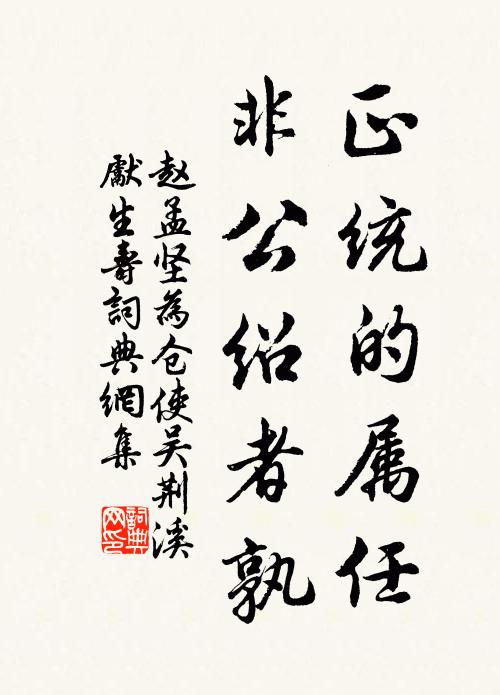 正统的属任
非公绍者孰
赵孟坚為仓使吴荆溪
獻生壽詞典網集
詞典网印